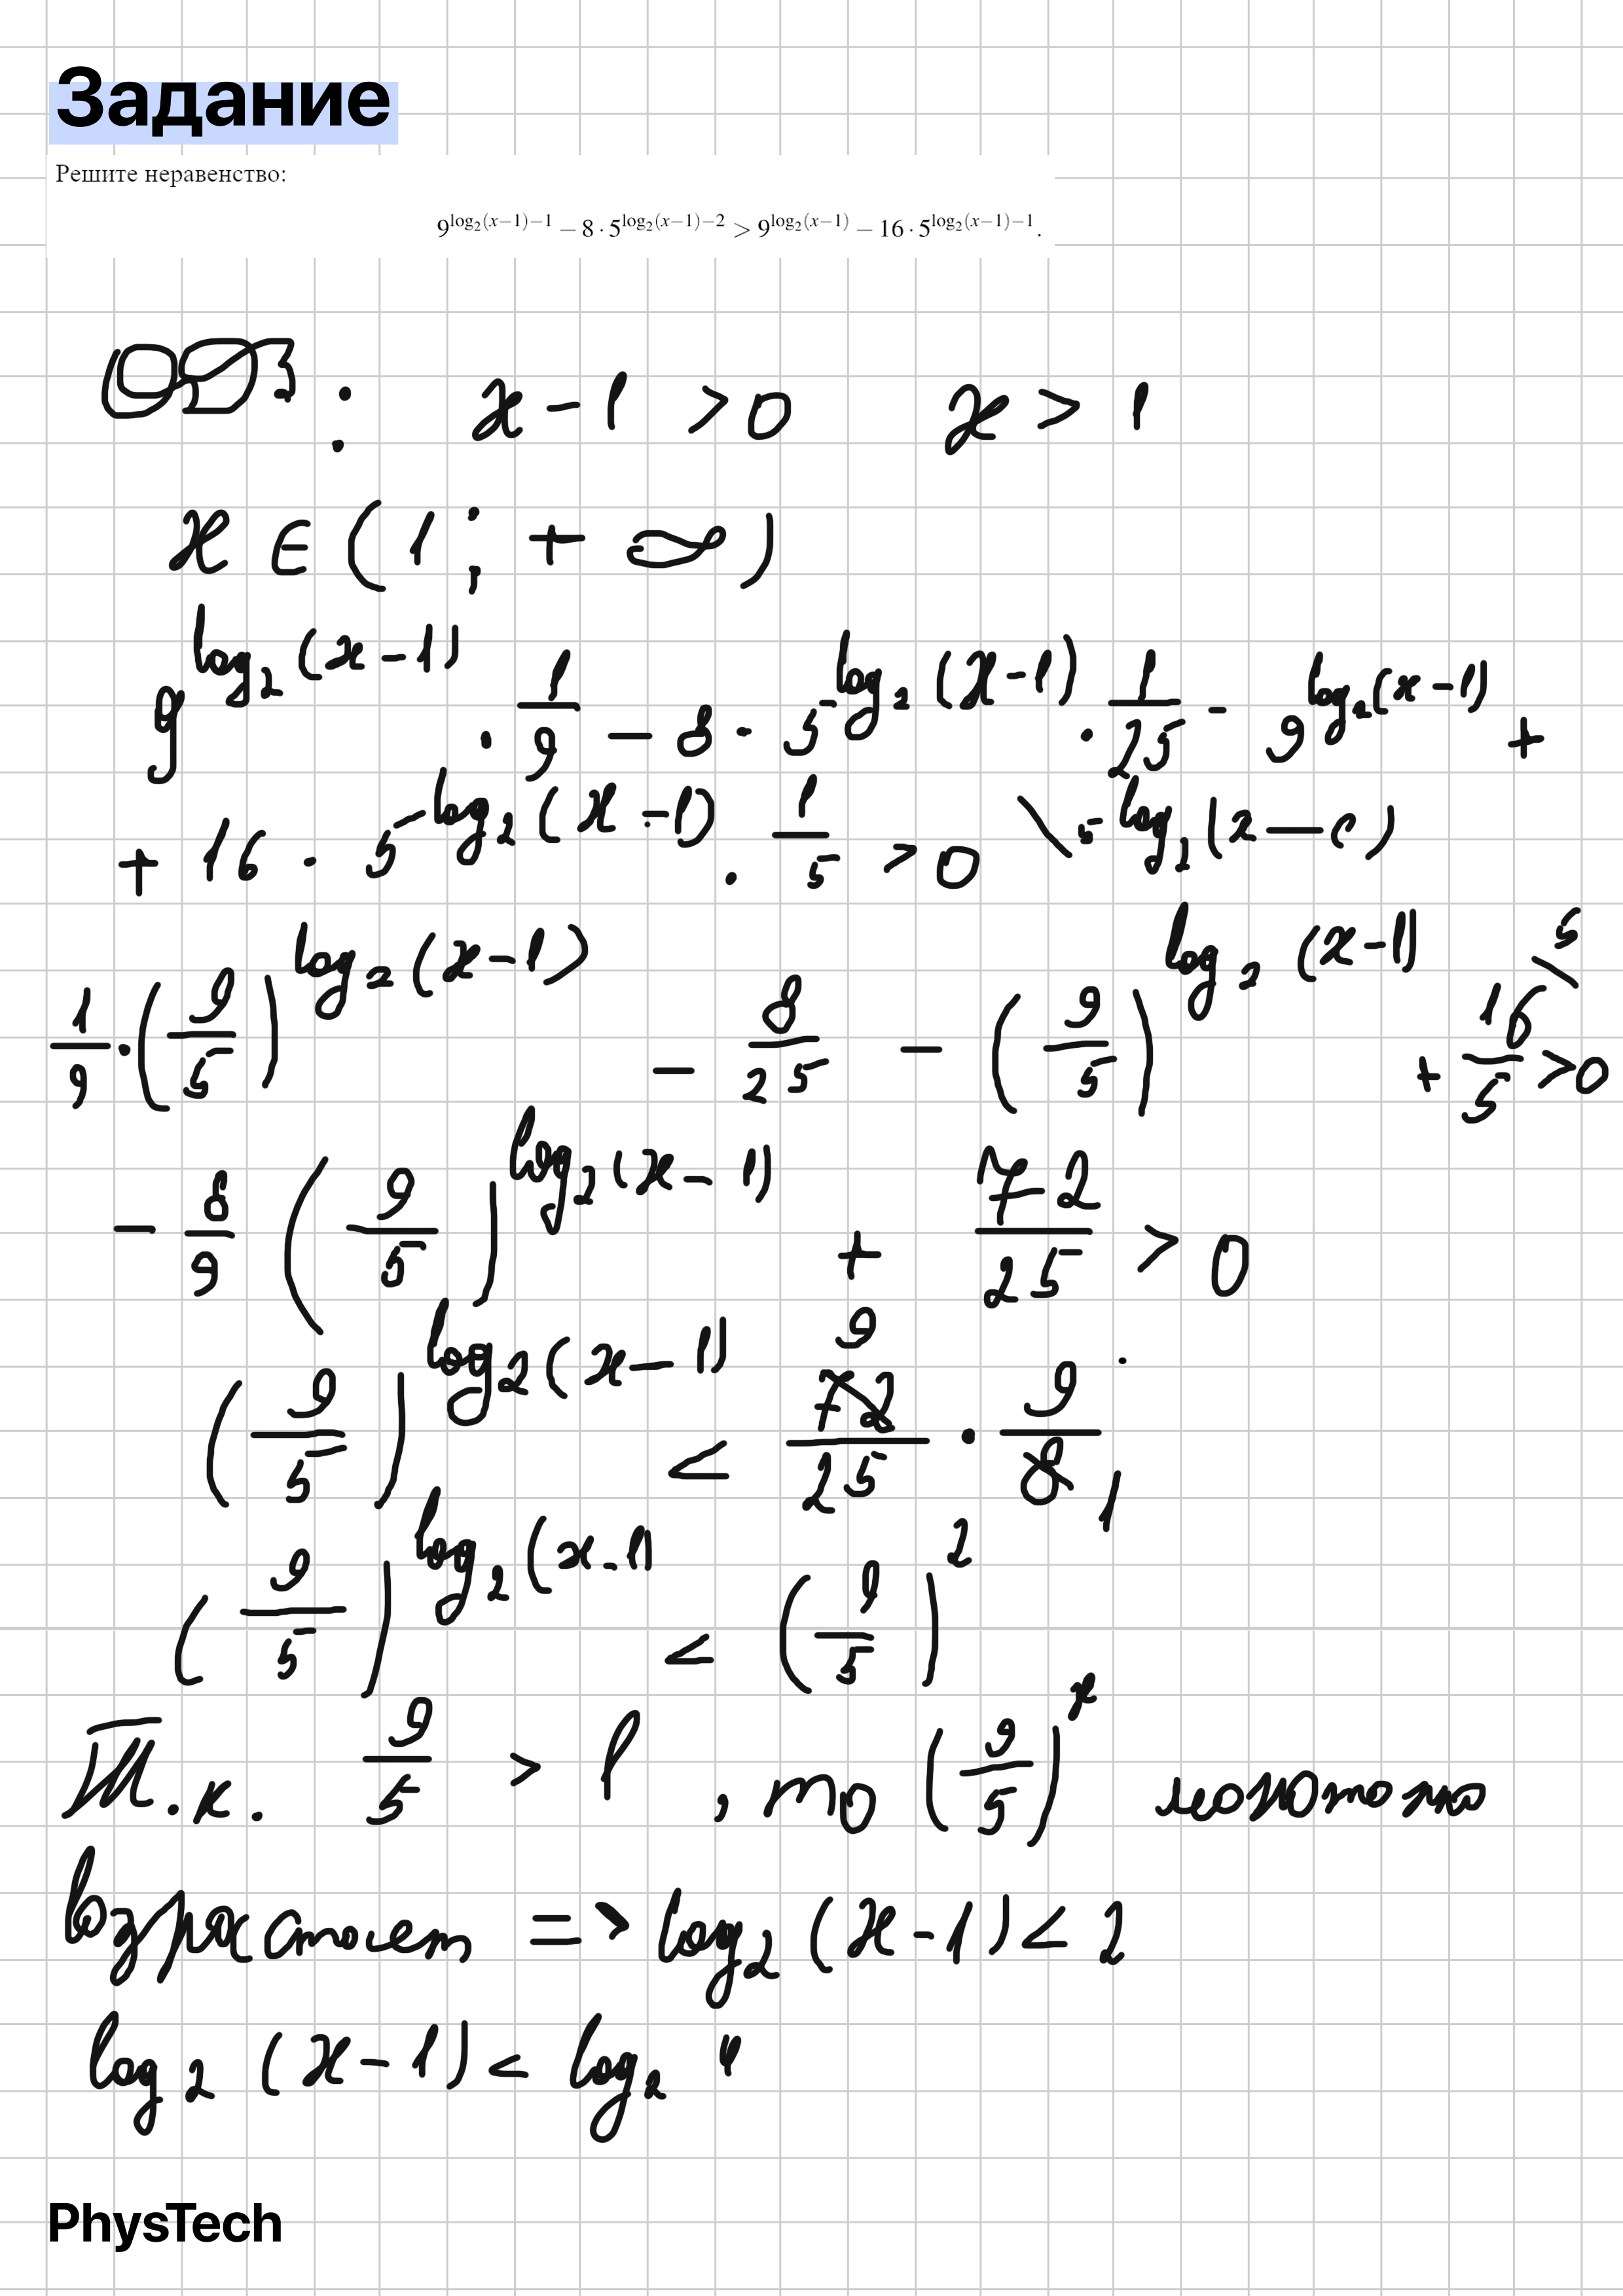 Задание
Решите неравенство:
9^{log₂(x−1)−1} − 8 · 5^{log₂(x−1)−2} > 9^{log₂(x−1)} − 16 · 5^{log₂(x−1)−1}.
ОДЗ : x − 1 > 0 x > 1
x ∈ (1 ; + ∞)
9^{log₂(x−1)} · 1/9 − 8 · 5^{log₂(x−1)} · 1/25 − 9^{log₂(x−1)} +
+ 16 · 5^{log₂(x−1)} · 1/5 > 0 \ 5^{log₂(x−1)}
1/9 · (9/5)^{log₂(x−1)} − 8/25 − (9/5)^{log₂(x−1)} + 16\5/5 > 0
− 8/9 (9/5)^{log₂(x−1)} + 72/25 > 0
(9/5)^{log₂(x−1)} < 72 9/25 · 9/8 1
(9/5)^{log₂(x−1)} < (9/5)²
Т.к. 9/5 > 1 , то (9/5)^x монотонно
возрастает => log₂(x−1) < 2
log₂(x−1) < log₂ 4
PhysTech